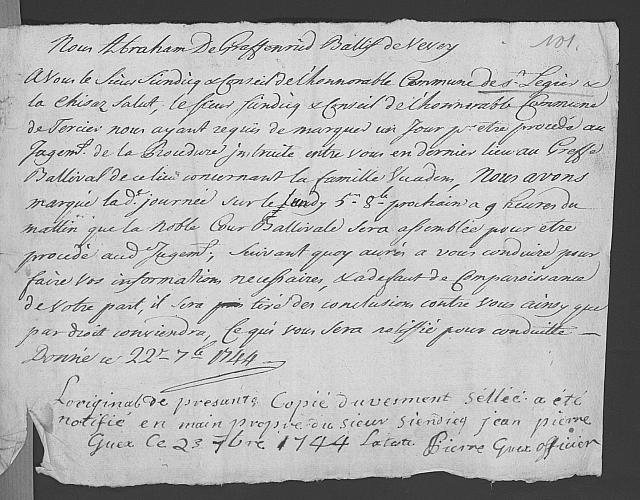 101.
Nous Abraham De Graffenried Ballif de Vevey
A Vous le Sieur Sindicq & Conseil de l'honnorable Commune de St. Legier &
la Chiesaz Salut, le Sieur Sindicq & Conseil de l'honnorable Commune
de Tercier nous ayant requis de marquer un Jour pr. etre procedé au
Jugemt. de la Procedure instruite entre vous en dernier lieu au Greffe
Ballival de ce lieu concernant la famille Vuadens, Nous avons
marqué la de. journée sur le Lundy 5e. 8bre prochain a 9 heures du
mattin que la Noble Cour Ballivale sera assemblée pour etre
procedé aud. Jugemt; suivant quoy aurés a vous conduire pour
faire vos informations necessaires, & a defaut de Comparoissance
de Votre part, il sera tiré des conclusions contre Vous ainsy que
par droit conviendra, Ce qui vous sera notiffié pour conduitte
Donné ce 22e. 7bre 1744
L'original de presante Copie duvesment sellée a été
notifie en main propre du Sieur Siendicq jean pierre
Guex Ce 23 7bre 1744 Pierre Guex officier